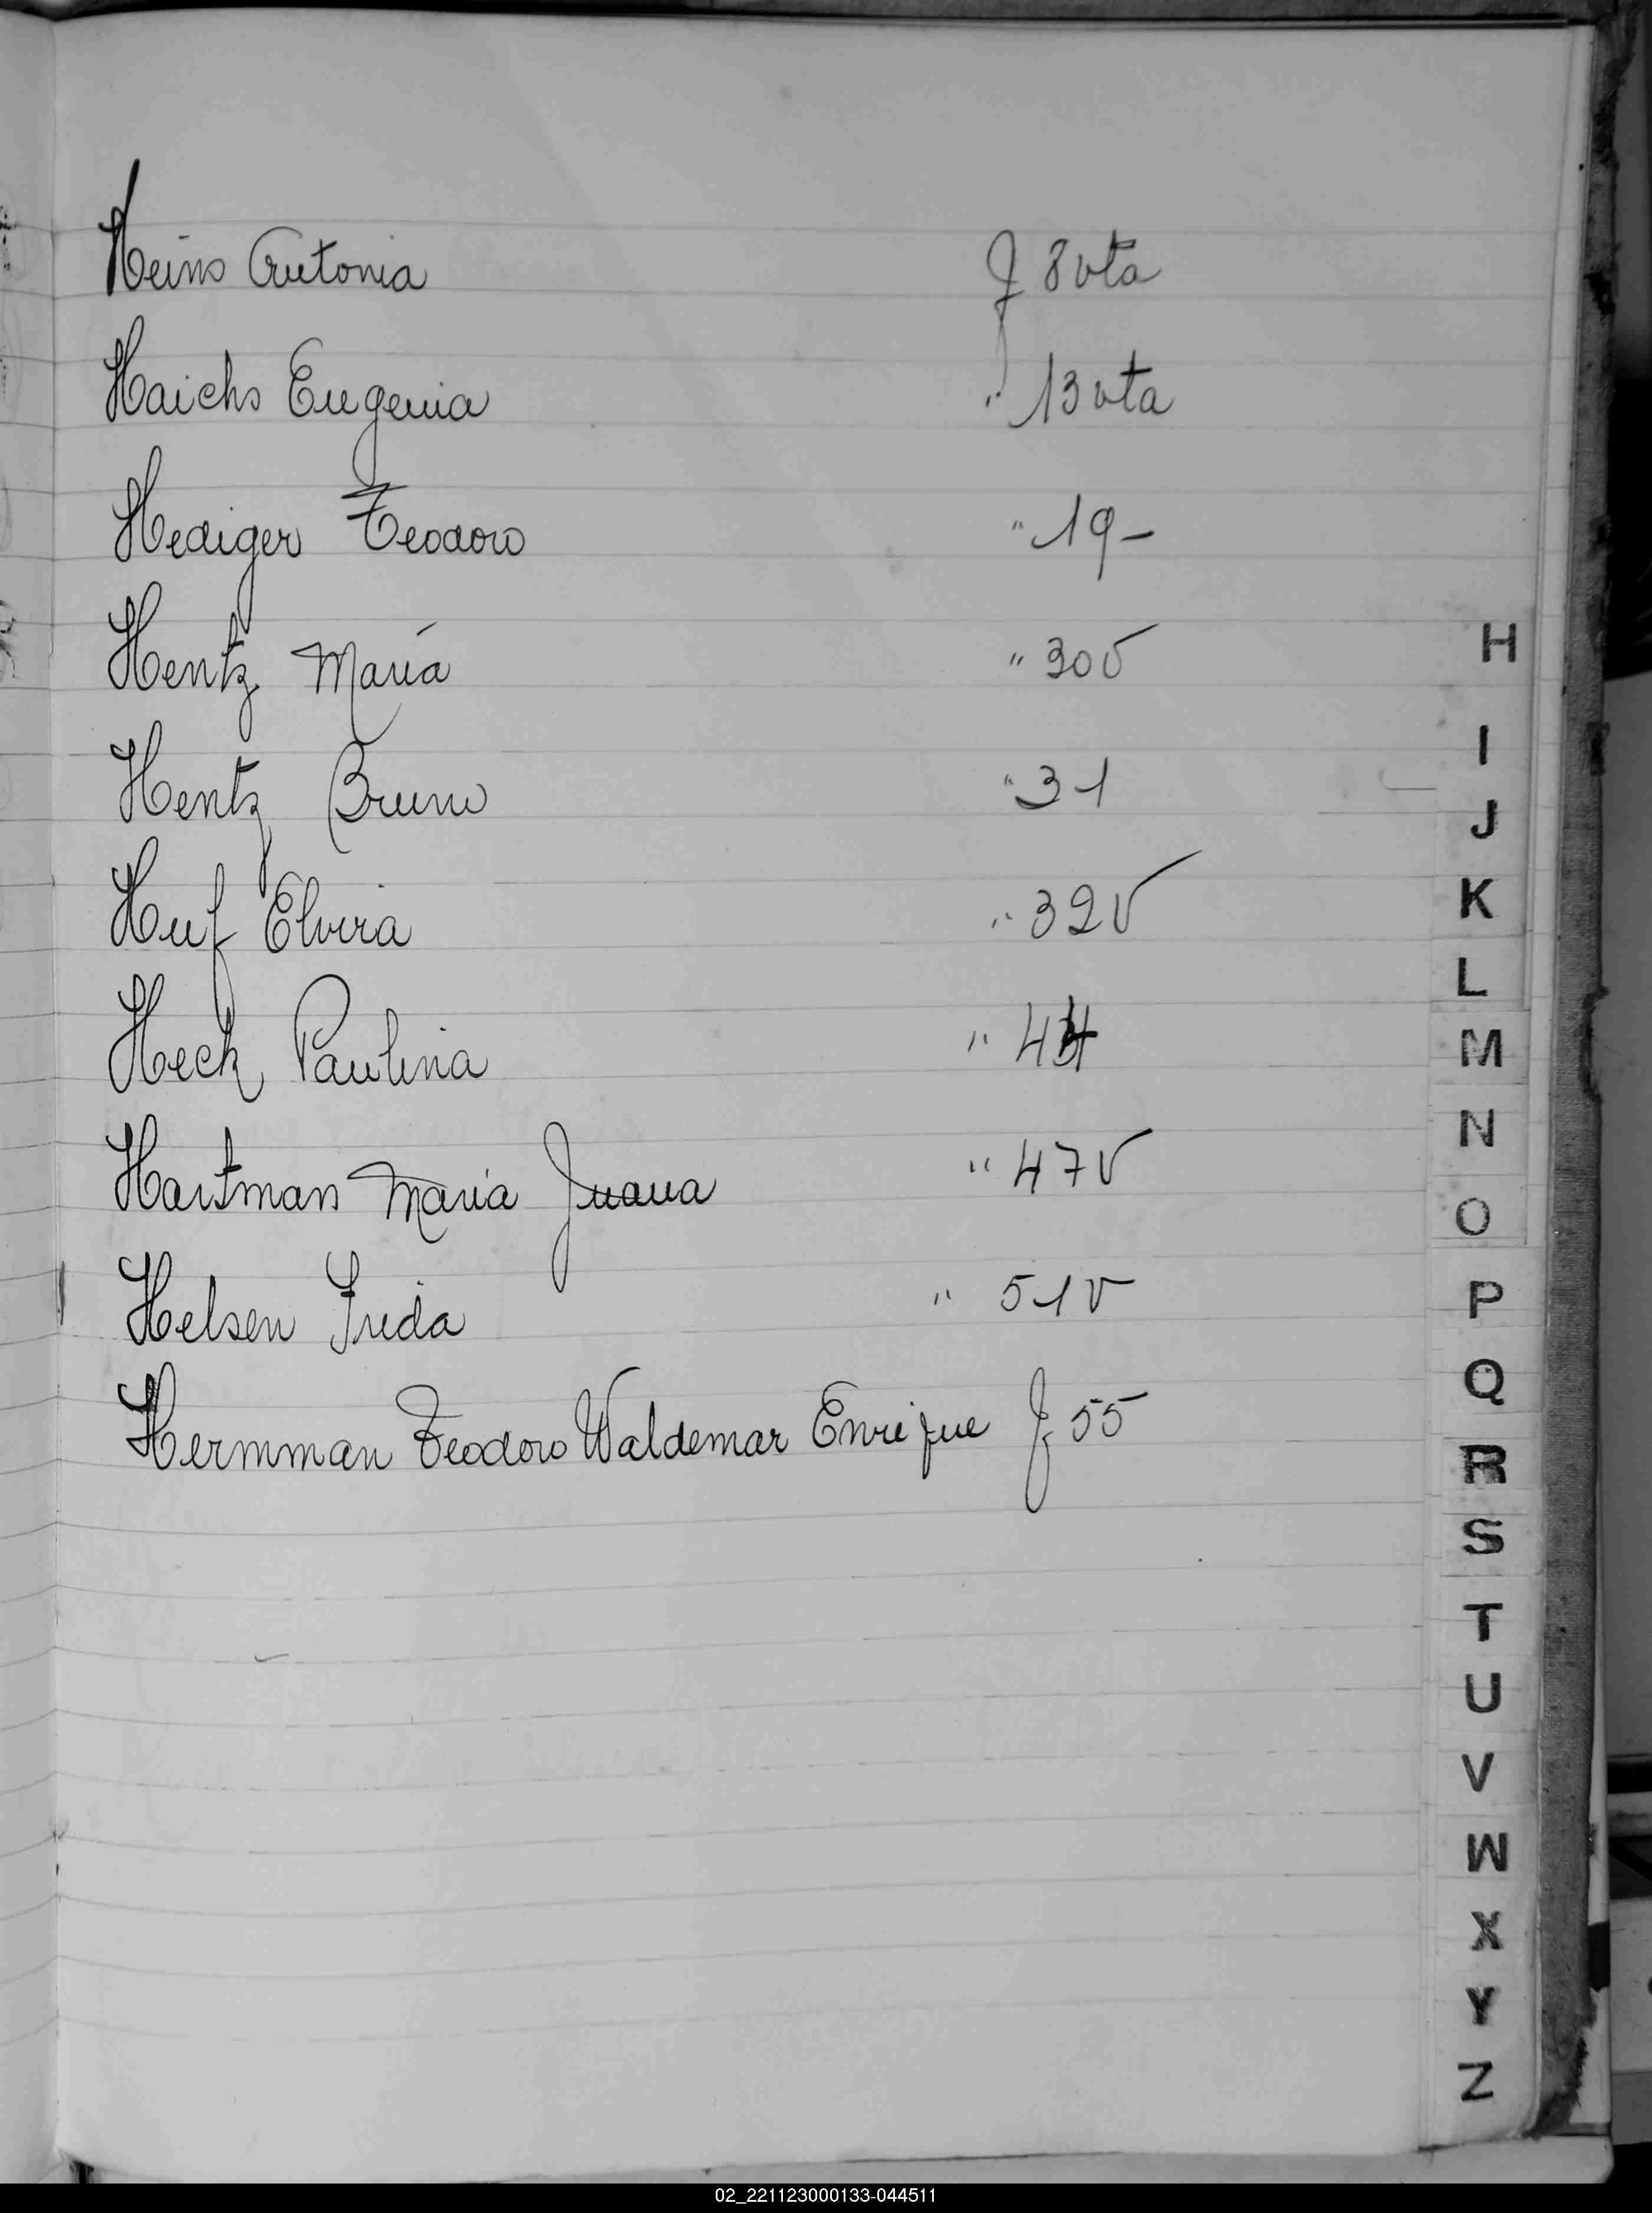 Heins Antonia f 8 vta
Haichs Eugenia " 13 vta
Hediger Teodoro " 19-
Hentz María " 30 v
Hentz Bruno " 31
Huf Elvira " 32 v
Heck Paulina " 44
Hartman María Juana " 47 v
Helsen Frida " 51 v
Hermman Teodoro Waldemar Enrique f 55
H
I
J
K
L
M
N
O
P
Q
R
S
T
U
V
W
X
Y
Z
02_221123000133-044511